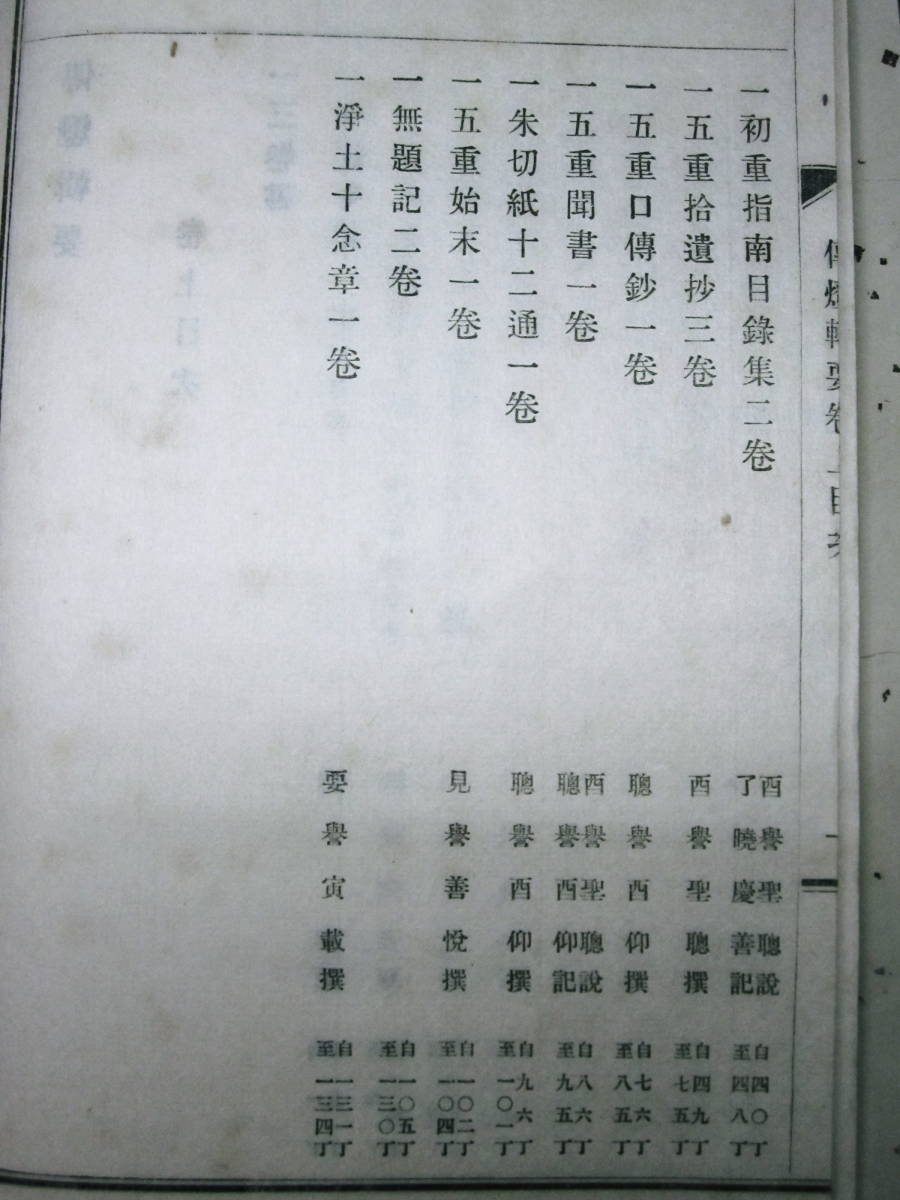 傳燈輯要卷上目次
一初重指南目錄集二卷 酉譽聖聰說 了曉慶善記 自四〇丁 至四八丁
一五重拾遺抄三卷 酉譽聖聰撰 自四九丁 至七五丁
一五重口傳鈔一卷 聰譽酉仰撰 自七六丁 至八五丁
一五重聞書一卷 酉譽聖聰說 聰譽酉仰記 自八六丁 至九五丁
一朱切紙十二通一卷 聰譽酉仰撰 自九六丁 至一〇一丁
一五重始末一卷 見譽善悅撰 自一〇二丁 至一〇四丁
一無題記二卷 自一〇五丁 至一三〇丁
一淨土十念章一卷 要譽寅載撰 自一三一丁 至一三四丁